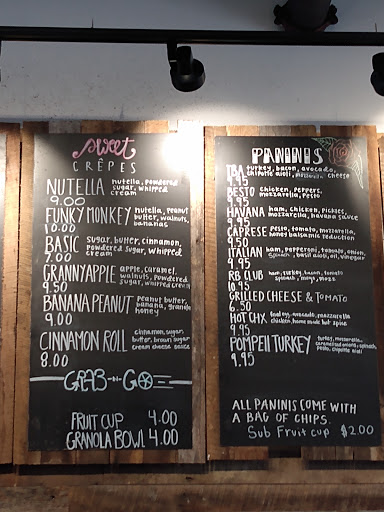 sweet
CRÊPES
NUTELLA nutella, powdered
sugar, whipped
cream
9.00
FUNKY MONKEY nutella, peanut
butter, walnuts,
bananas
10.00
BASIC sugar, butter, cinnamon,
powdered sugar, whipped
cream
7.00
GRANNY APPLE apple, caramel,
walnuts, powdered
sugar, whipped cream
9.50
BANANA PEANUT peanut butter,
banana, granola
honey
9.00
CINNAMON ROLL cinnamon, sugar,
butter, brown sugar
cream cheese sauce
8.00
GRAB-N-GO
FRUIT CUP 4.00
GRANOLA BOWL 4.00
PANINIS
TBA turkey, bacon, avocado,
chipotle aioli, mozzarella cheese
9.95
PESTO chicken, peppers,
mozzarella, pesto
9.95
HAVANA ham, chicken, pickles,
mozzarella, havana sauce
9.95
CAPRESE pesto, tomato, mozzarella,
honey balsamic reduction
9.50
ITALIAN ham, pepperoni, tomato, onion,
spinach, basil aioli, oil, vinegar
9.95
RB CLUB ham, turkey, bacon, tomato
spinach, mayo, mozz
10.95
GRILLED CHEESE & TOMATO
6.50
HOT CHX avocado, mozzarella
chicken, home made hot spice
9.95
POMPEII TURKEY turkey, mozzarella,
caramelized onions, spinach,
pesto, chipotle aioli
9.95
ALL PANINIS COME WITH
A BAG OF CHIPS.
Sub Fruit cup $2.00